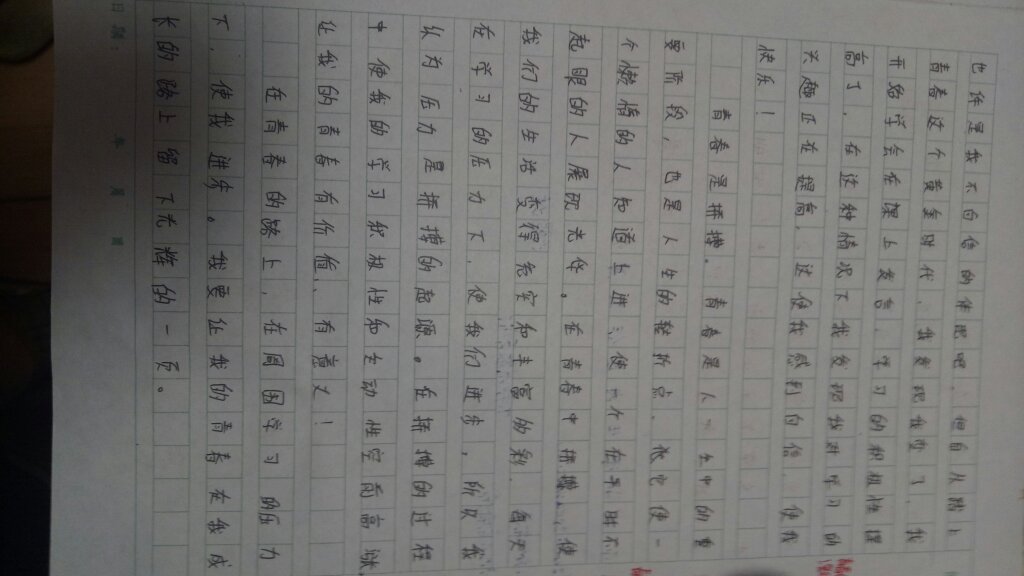 也许是我不自信的伴 吧，但自从踏上
青春这个黄金时代，我发现我变了，我
开始学会在课上发言，学习的积极性提
高了，在这种情况下我发现我对学习的
兴趣正在提高，这使我感到自信，使我
快乐！
青春是拼搏。青春是人一生中的重
要阶段，也是人生的转折点，他它使一
个懒惰的人知道上进，使一个在平时不
起眼的人展现光华。在青春中拼搏，使
我们的生活变得充实和丰富多彩，每天
在学习的压力下，使我们进步，所以我
认为压力是拼搏的起源。在拼搏的过程
中使我的学习积极性和主动性空前高涨
让我的青春有价值、有意义！
在青春的路上，在周围学习的压力
下，使我进步。我要让我的青春在我成
长的路上留下光辉的一页。
日期： 年 月 日